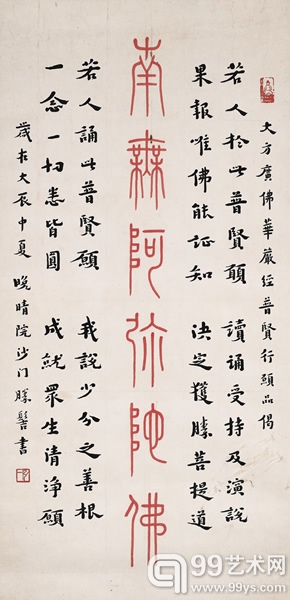 大方廣佛華嚴經普賢行願品偈
若人於此普賢願 讀誦受持及演說
果報唯佛能証知 決定獲勝菩提道
南無阿弥陀佛
若人誦此普賢願 我說少分之善根
一念一切悉皆圓 成就眾生清淨願
歲在大辰中夏 晚晴院沙门勝髻書
99艺术网
www.99ys.com